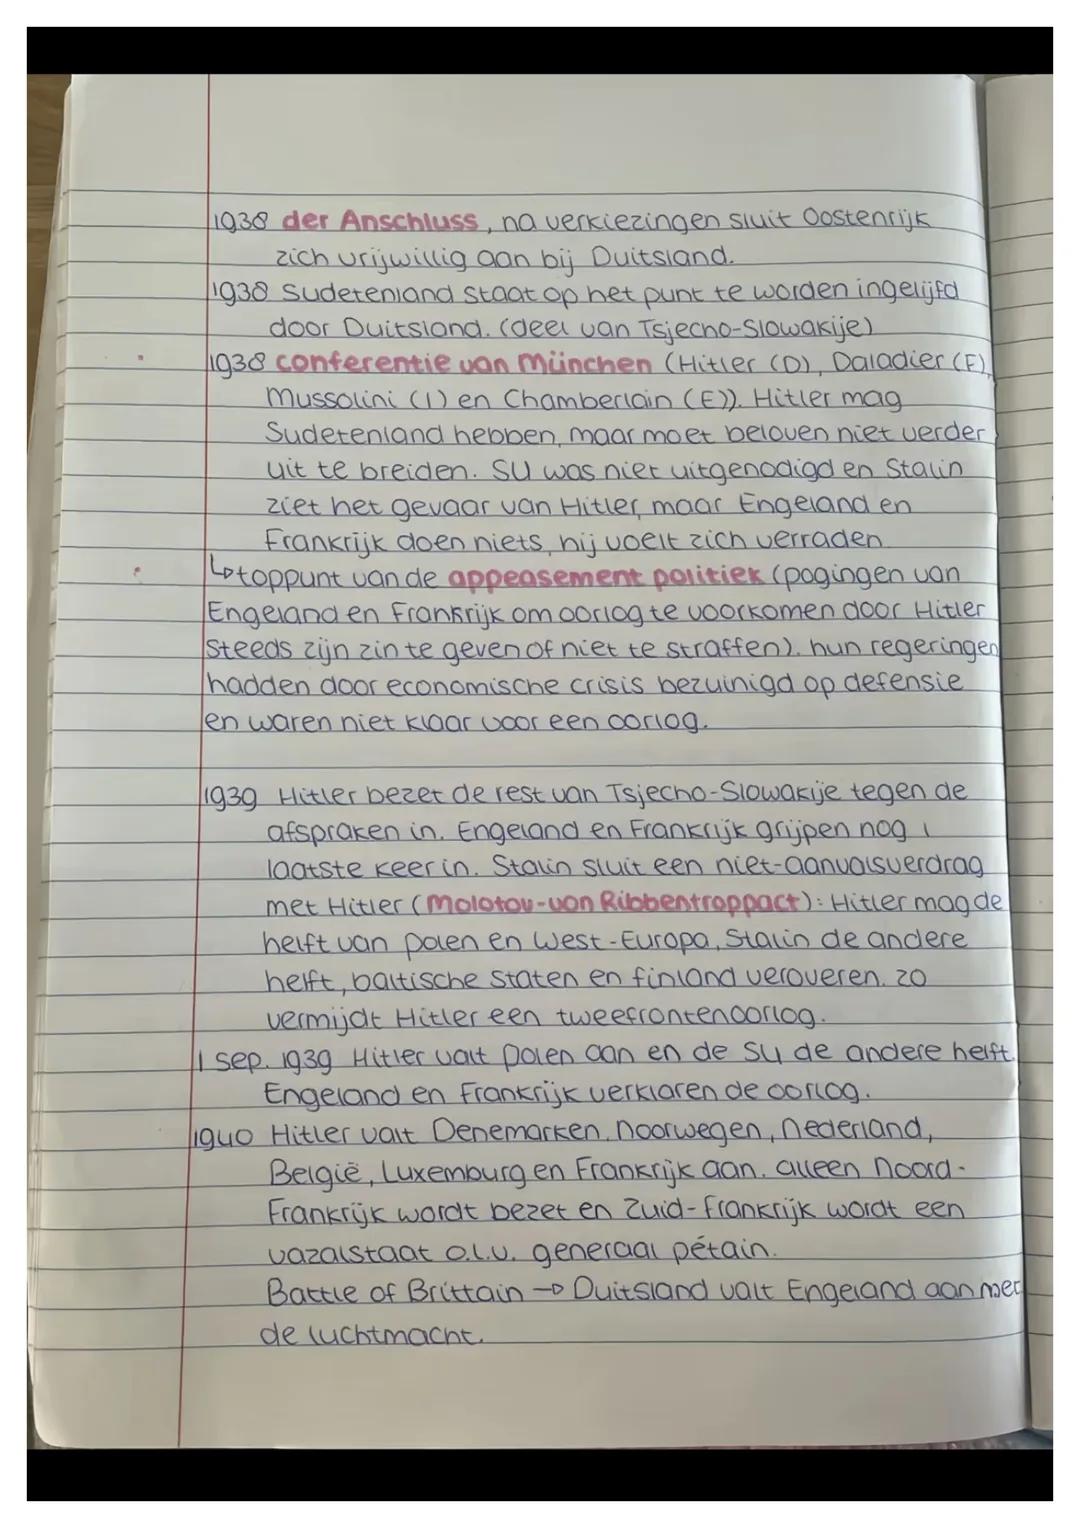 1938 der Anschluss, na verkiezingen sluit Oostenrijk
zich vrijwillig aan bij Duitsland.
1938 Sudetenland staat op het punt te worden ingelijfd
door Duitsland. (deel van Tsjecho-Slowakije)
1938 conferentie van München (Hitler (D), Daladier (F),
Mussolini (I) en Chamberlain (E)). Hitler mag
Sudetenland hebben, maar moet beloven niet verder
uit te breiden. SU was niet uitgenodigd en Stalin
ziet het gevaar van Hitler, maar Engeland en
Frankrijk doen niets, hij voelt zich verraden
↳ toppunt van de appeasement politiek (pogingen van
Engeland en Frankrijk om oorlog te voorkomen door Hitler
steeds zijn zin te geven of niet te straffen). hun regeringen
hadden door economische crisis bezuinigd op defensie
en waren niet klaar voor een oorlog.
1939 Hitler bezet de rest van Tsjecho-Slowakije tegen de
afspraken in. Engeland en Frankrijk grijpen nog 1
laatste keer in. Stalin sluit een niet-aanvalsverdrag
met Hitler (Molotov-von Ribbentroppact): Hitler mag de
helft van Polen en West-Europa, Stalin de andere
helft, baltische staten en finland veroveren. zo
vermijdt Hitler een tweefrontenoorlog.
1 sep. 1939 Hitler valt Polen aan en de SU de andere helft.
Engeland en Frankrijk verklaren de oorlog.
1940 Hitler valt Denemarken, Noorwegen, Nederland,
België, Luxemburg en Frankrijk aan. alleen Noord-
Frankrijk wordt bezet en Zuid-Frankrijk wordt een
vazalstaat o.l.v. generaal pétain.
Battle of Brittain → Duitsland valt Engeland aan met
de luchtmacht.